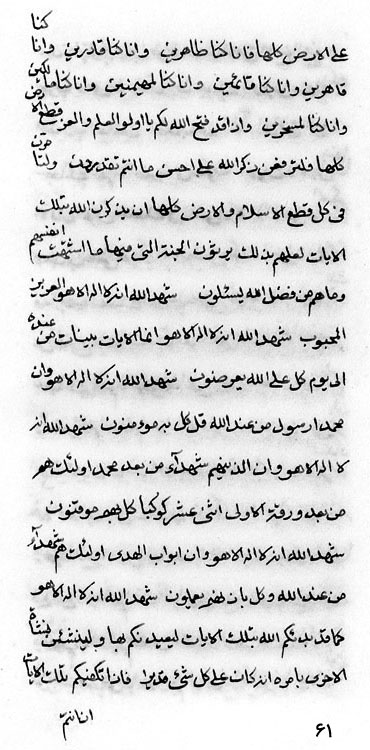 كنا
على الارض كلها فانا كنا ظاهرين وانا كنا قادرين وانا
قاهرين وانا كنا قائمين وانا كنا مهيمنين وانا كنا مالكين
وانا كنا لمسخرين واذا قد فتح الله لكم يا اولو العلم والعز قطع الارض
كلها فلترفعن ذكر الله على احسن ما انتم تقدرون ولتا مرون
فى كل قطع الاسلام والارض كلها ان يذكرن الله بتلك
الايات لعلهم بذلك يرثون الجنة التى فيها ما اشتهت انفسهم
وما هم من فضل الله يسئلون شهد الله انه لا اله الا هو العزيز
المحبوب شهد الله انه لا اله الا هو انما الايات بينات من عنده
الى يوم كل على الله يعرضون شهد الله انه لا اله الا هو وان
محمد ا رسول من عند الله قل كل به موءمنون شهد الله انه
لا اله الا هو وان الذينهم شهدآء من بعد محمد اولئك هم
من بعد ورقة الاولى اثنى عشر كوكبا كل بهم موقنون
شهد الله انه لا اله الا هو وان ابواب الهدى اولئك هم شهدآء
من عند الله وكل باذنهم يعملون شهد الله انه لا اله الا هو
كما قد بدئكم الله بتلك الايات ليعيدنكم بها ولينشئن نشاة
الاخرى بامره انه كان على كل شئ قديرا فاذا تكفينكم تلك الايات
ان انتم
٦١